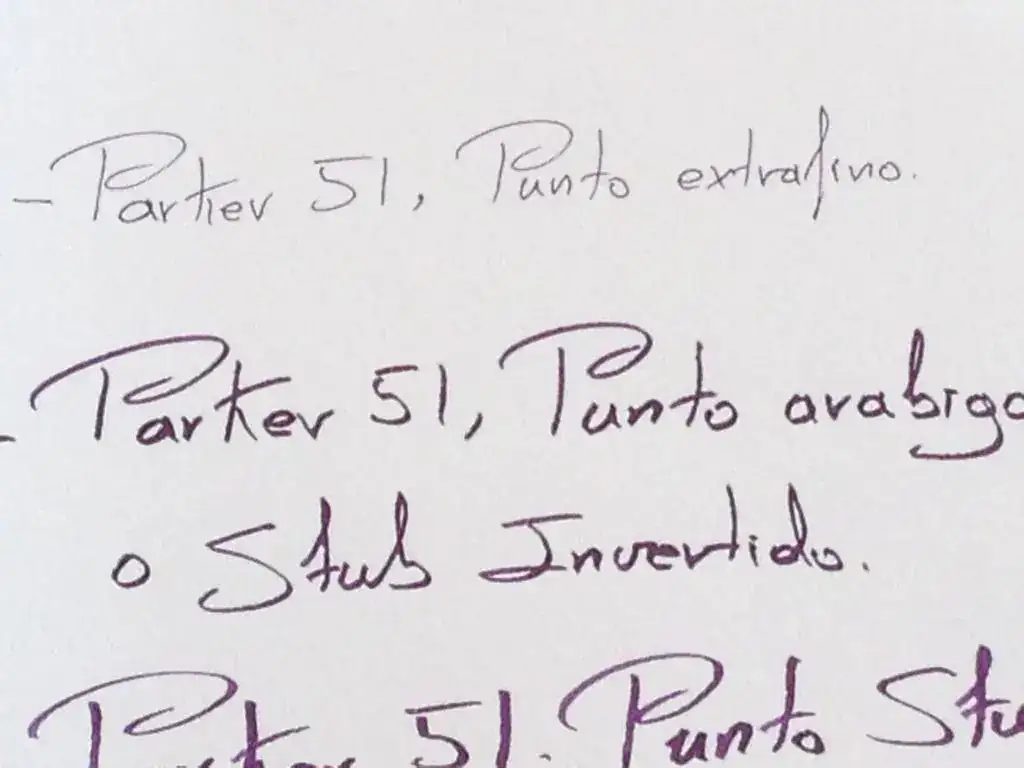 - Parker 51, Punto extrafino.
- Parker 51, Punto arabigo
o Stub Invertido.
Parker 51. Punto Stu